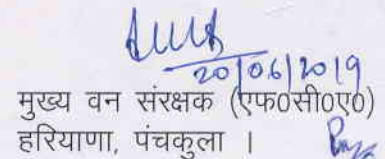 20/06/2019
मुख्य वन संरक्षक (एफ0सी0ए0)
हरियाणा, पंचकुला ।